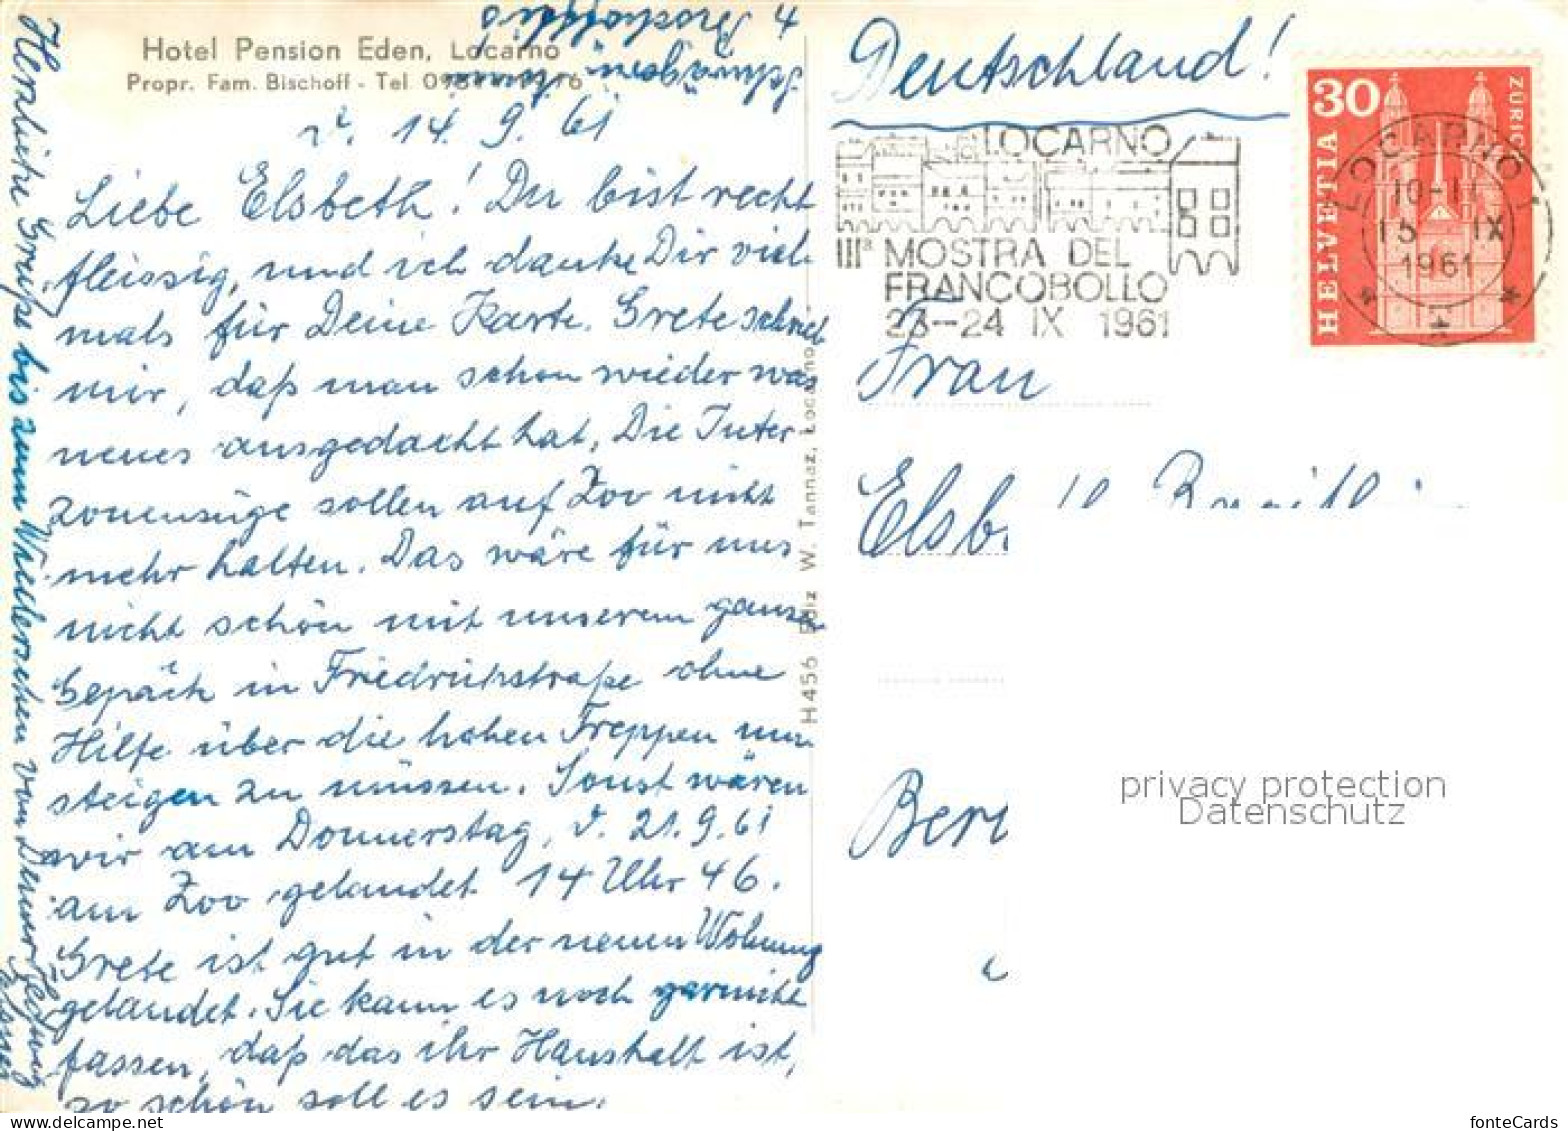 Hotel Pension Eden, Locarno
Propr. Fam. Bischoff - Tel
d. 14. 9. 61
Liebe Elsbeth! Du bist recht
fleissig, und ich danke Dir viel-
mals für Deine Karte. Grete schrieb
mir, daß man schon wieder was
neues ausgedacht hat. Die Inter
zonenzüge sollen auf Zoo nicht
mehr halten. Das wäre für uns
nicht schön mit unserem ganzen
Gepäck in Friedrichstraße ohne
Hilfe über die hohen Treppen nun
steigen zu müssen. Sonst wären
wir am Donnerstag, d. 21.9.61
am Zoo gelandet 14 Uhr 46.
Grete ist gut in der neuen Wohnung
gelandet. Sie kann es noch garnicht
fassen, daß das ihr Haushalt ist,
so schön soll es sein.
Herzliche Grüße bis zum Wiedersehen von Deiner
Schwägerin
H456 Ediz W. Tannaz, Locarno
Deutschland!
LOCARNO
IIIª MOSTRA DEL
FRANCOBOLLO
23-24 IX 1961
30
HELVETIA
ZÜRICH
LOCARNO 1
10-11
15 IX
1961
Frau
Elsb
Ber
privacy protection
Datenschutz
fonteCards